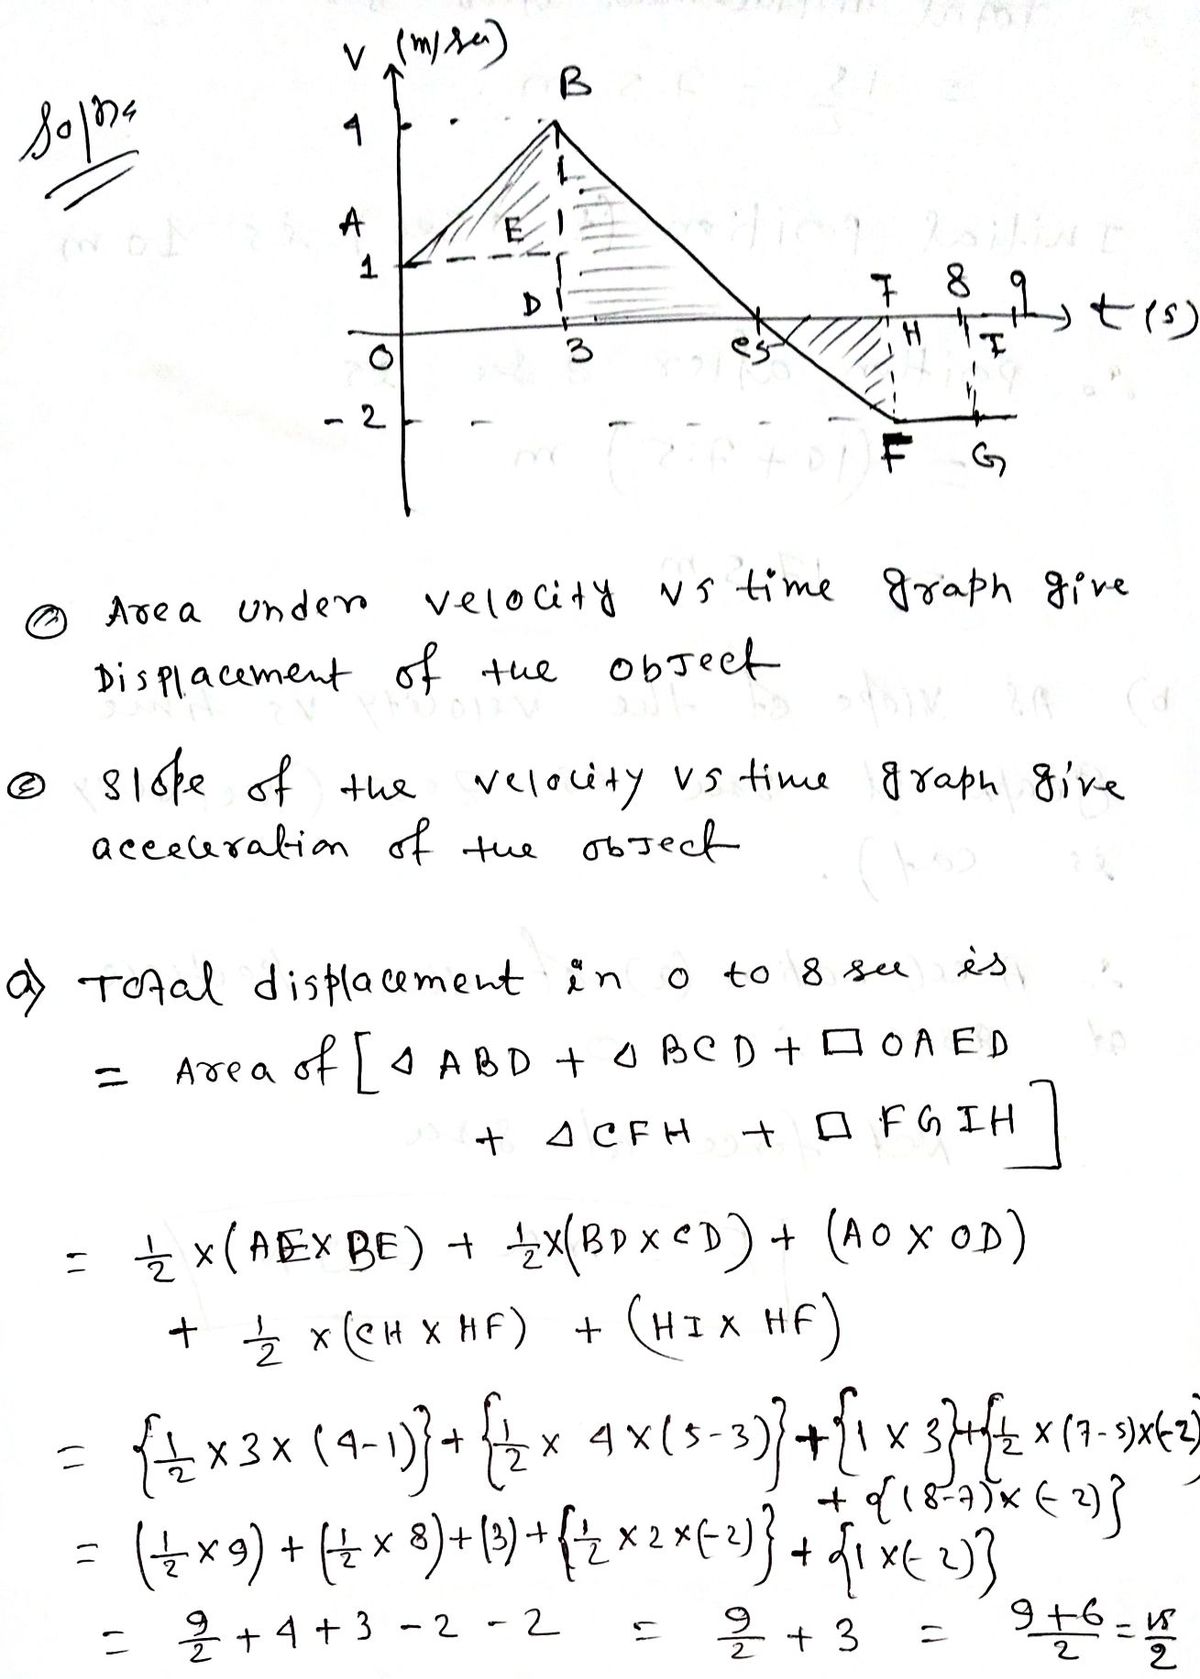 V (m/sec)
Solns
B
4
A
E
1
D
7 8 9
t (s)
0
3
C5
H
I
-2
F
G
① Area under velocity vs time graph give
Displacement of the object
② Slope of the velocity vs time graph give
acceleration of the object
a) Total displacement in 0 to 8 sec is
= Area of [ Δ ABD + Δ BCD + □ OAED
+ Δ CFH + □ FGIH ]
= 1/2 × (AE × BE) + 1/2 × (BD × CD) + (AO × OD)
+ 1/2 × (CH × HF) + (HI × HF)
= {1/2 × 3 × (4-1)} + {1/2 × 4 × (5-3)} + {1 × 3} + {1/2 × (7-5) × (-2)}
+ {(8-7) × (-2)}
= (1/2 × 9) + (1/2 × 8) + (3) + {1/2 × 2 × (-2)} + {1 × (-2)}
= 9/2 + 4 + 3 - 2 - 2 = 9/2 + 3 = 9+6/2 = 15/2